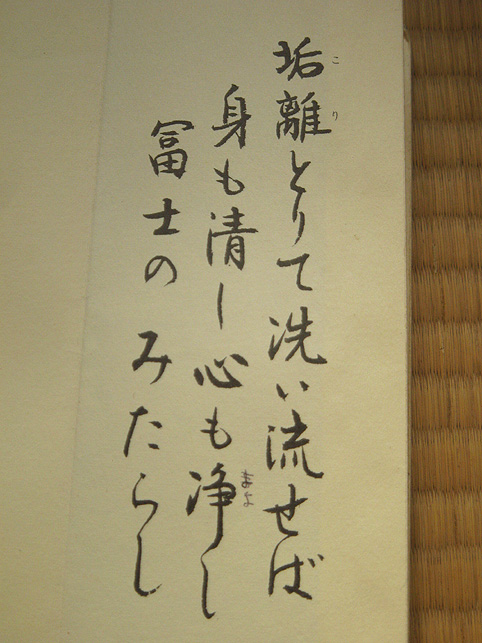 垢離とりて洗い流せば
こり
身も清し心も浄し
きよ
冨士のみたらし